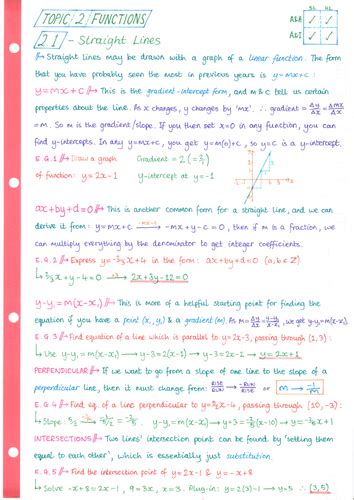 TOPIC 2 FUNCTIONS
SL HL
A&A ✓ ✓
A&I ✓ ✓
2.1 - Straight Lines
↳ Straight lines may be drawn with a graph of a linear function. The form
that you have probably seen the most in previous years is y=mx+c:
y=mx+c ↳ This is the gradient-intercept form, and m & c tell us certain
properties about the line. As x changes, y changes by 'mx'. ∴ gradient = Δy/Δx = mΔx/Δx
=m. So m is the gradient/slope. If you then set x=0 in any function, you can
find y-intercepts. In any y=mx+c, you get y=m(0)+c, so y=c is a y-intercept.
E.G.1 ↳ Draw a graph
of function: y=2x-1
Gradient = 2 (=2/1)
y-intercept at y=-1
ax+by+d=0 ↳ This is another common form for a straight line, and we can
derive it from: y=mx+c → -mx+y-c=0, then if m is a fraction, we
can multiply everything by the denominator to get integer coefficients.
E.G.2 ↳ Express y=-2/3x+4 in the form: ax+by+d=0 (a,b∈Z)
↳ 2/3x+y-4=0 → 2x+3y-12=0
y-y₁=m(x-x₁) ↳ This is more of a helpful starting point for finding the
equation if you have a point (x₁,y₁) & a gradient (m). As m=Δy/Δx=y-y₁/x-x₁, we get y-y₁=m(x-x₁).
E.G.3 ↳ Find equation of a line which is parallel to y=2x-3, passing through (1,3):
↳ Use y-y₁=m(x-x₁) → y-3=2(x-1) → y-3=2x-2 → y=2x+1
PERPENDICULAR ↳ If we want to go from a slope of one line to the slope of a
perpendicular line, then it must change from: RISE/RUN → -RUN/RISE or m → -1/m
E.G.4 ↳ Find eq. of a line perpendicular to
passing through (10,-3):
INTERSECTIONS ↳ Two lines' intersection point can be found by 'setting them
equal to each other', which is essentially just substitution.
E.G.5 ↳ Find the intersection point of y=2x-1 & y=-x+8
↳ Solve -x+8=2x-1, 9=3x, x=3. Plug-in: y=2(3)-1 → y=5 ∴ (3,5)